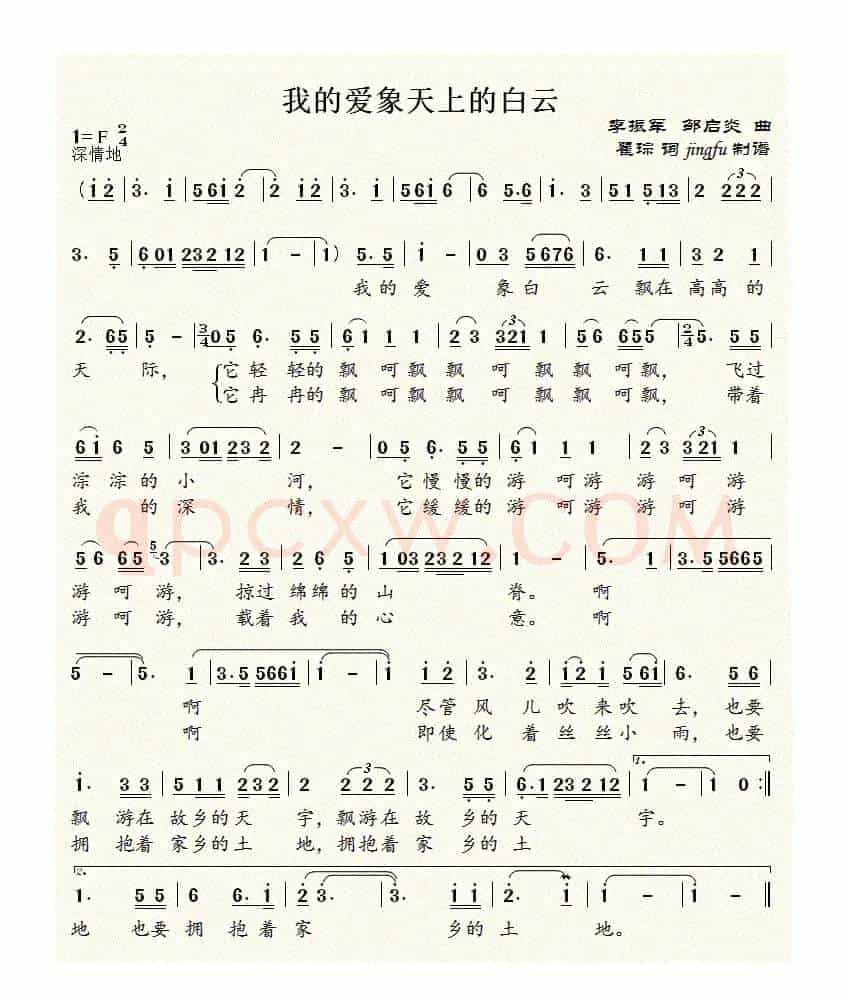 我的爱象天上的白云
1=F 2/4
李振军 邹启炎 曲
深情地
瞿琮 词 jingfu 制谱
(i 2 | 3. i | 5 6 i 2 | 2 i 2 | 3. i | 5 6 i 6 | 6 5.6 | i 5 | 5 5 1 3 | 2 2 2 2 |
3. 5 | 6 01 23 2 12 | 1 - | 1) 5.5 | i - | 0 3 5676 | 6. 1 1 | 3 2 1 |
我的 爱 象 白 云 飘在 高高 的
2. 65 | 5 - | 3/4 0 5 6. 5 5 | 6 1 1 1 1 | 2 3 321 1 | 5 6 655 5 | 2/4 5. 5 5 |
天 际, 它 轻 轻的 飘 呵飘飘 呵 飘飘 呵飘, 飞过
它 冉 冉的 飘 呵飘飘 呵 飘飘 呵飘, 带着
6 i 6 5 | 3 01 23 2 | 2 - | 0 5 6. 5 5 | 6 1 1 1 1 | 2 3 321 1 |
淙 淙 的 小 河, 它 慢 慢的 游 呵游 游 呵 游
我 的 深 情, 它 缓 缓的 游 呵游 游 呵 游
qpcxw.COM
5 6 65 5 3 | 3. 3 3 | 2 6 5 | 1 03 23 2 12 | 1 - | 5. 5 | 3.5 5665 |
游 呵 游, 掠过 绵绵 的 山 脊。 啊
游 呵 游, 载着 我 的 心 意。 啊
5 - | 5. 1 | 3.5 566i | i - | i i 2 | 3. 2 | i 2 i 5 6 i | 6. 5 6 |
啊 尽管 风 儿 吹 来 吹 去, 也要
啊 即使 化 着 丝 丝 小 雨, 也要
1. 3 3 | 5 1 1 2 3 2 | 2 2 2 2 | 3. 5 5 | 6.1 23 2 12 | 1 - | 1 0 :|
1.
飘 游在 故乡的 天 宇, 飘游在 故 乡的 天 宇。
拥 抱着 家乡的 土 地, 拥抱着 家 乡的 土
2.
1. 5 5 | 6 6. i | 2 3. | 3. i | i i 2 | 2. i | i - | 3. - | i - | i 0 ||
地 也要 拥 抱着 家 乡的 土 地。